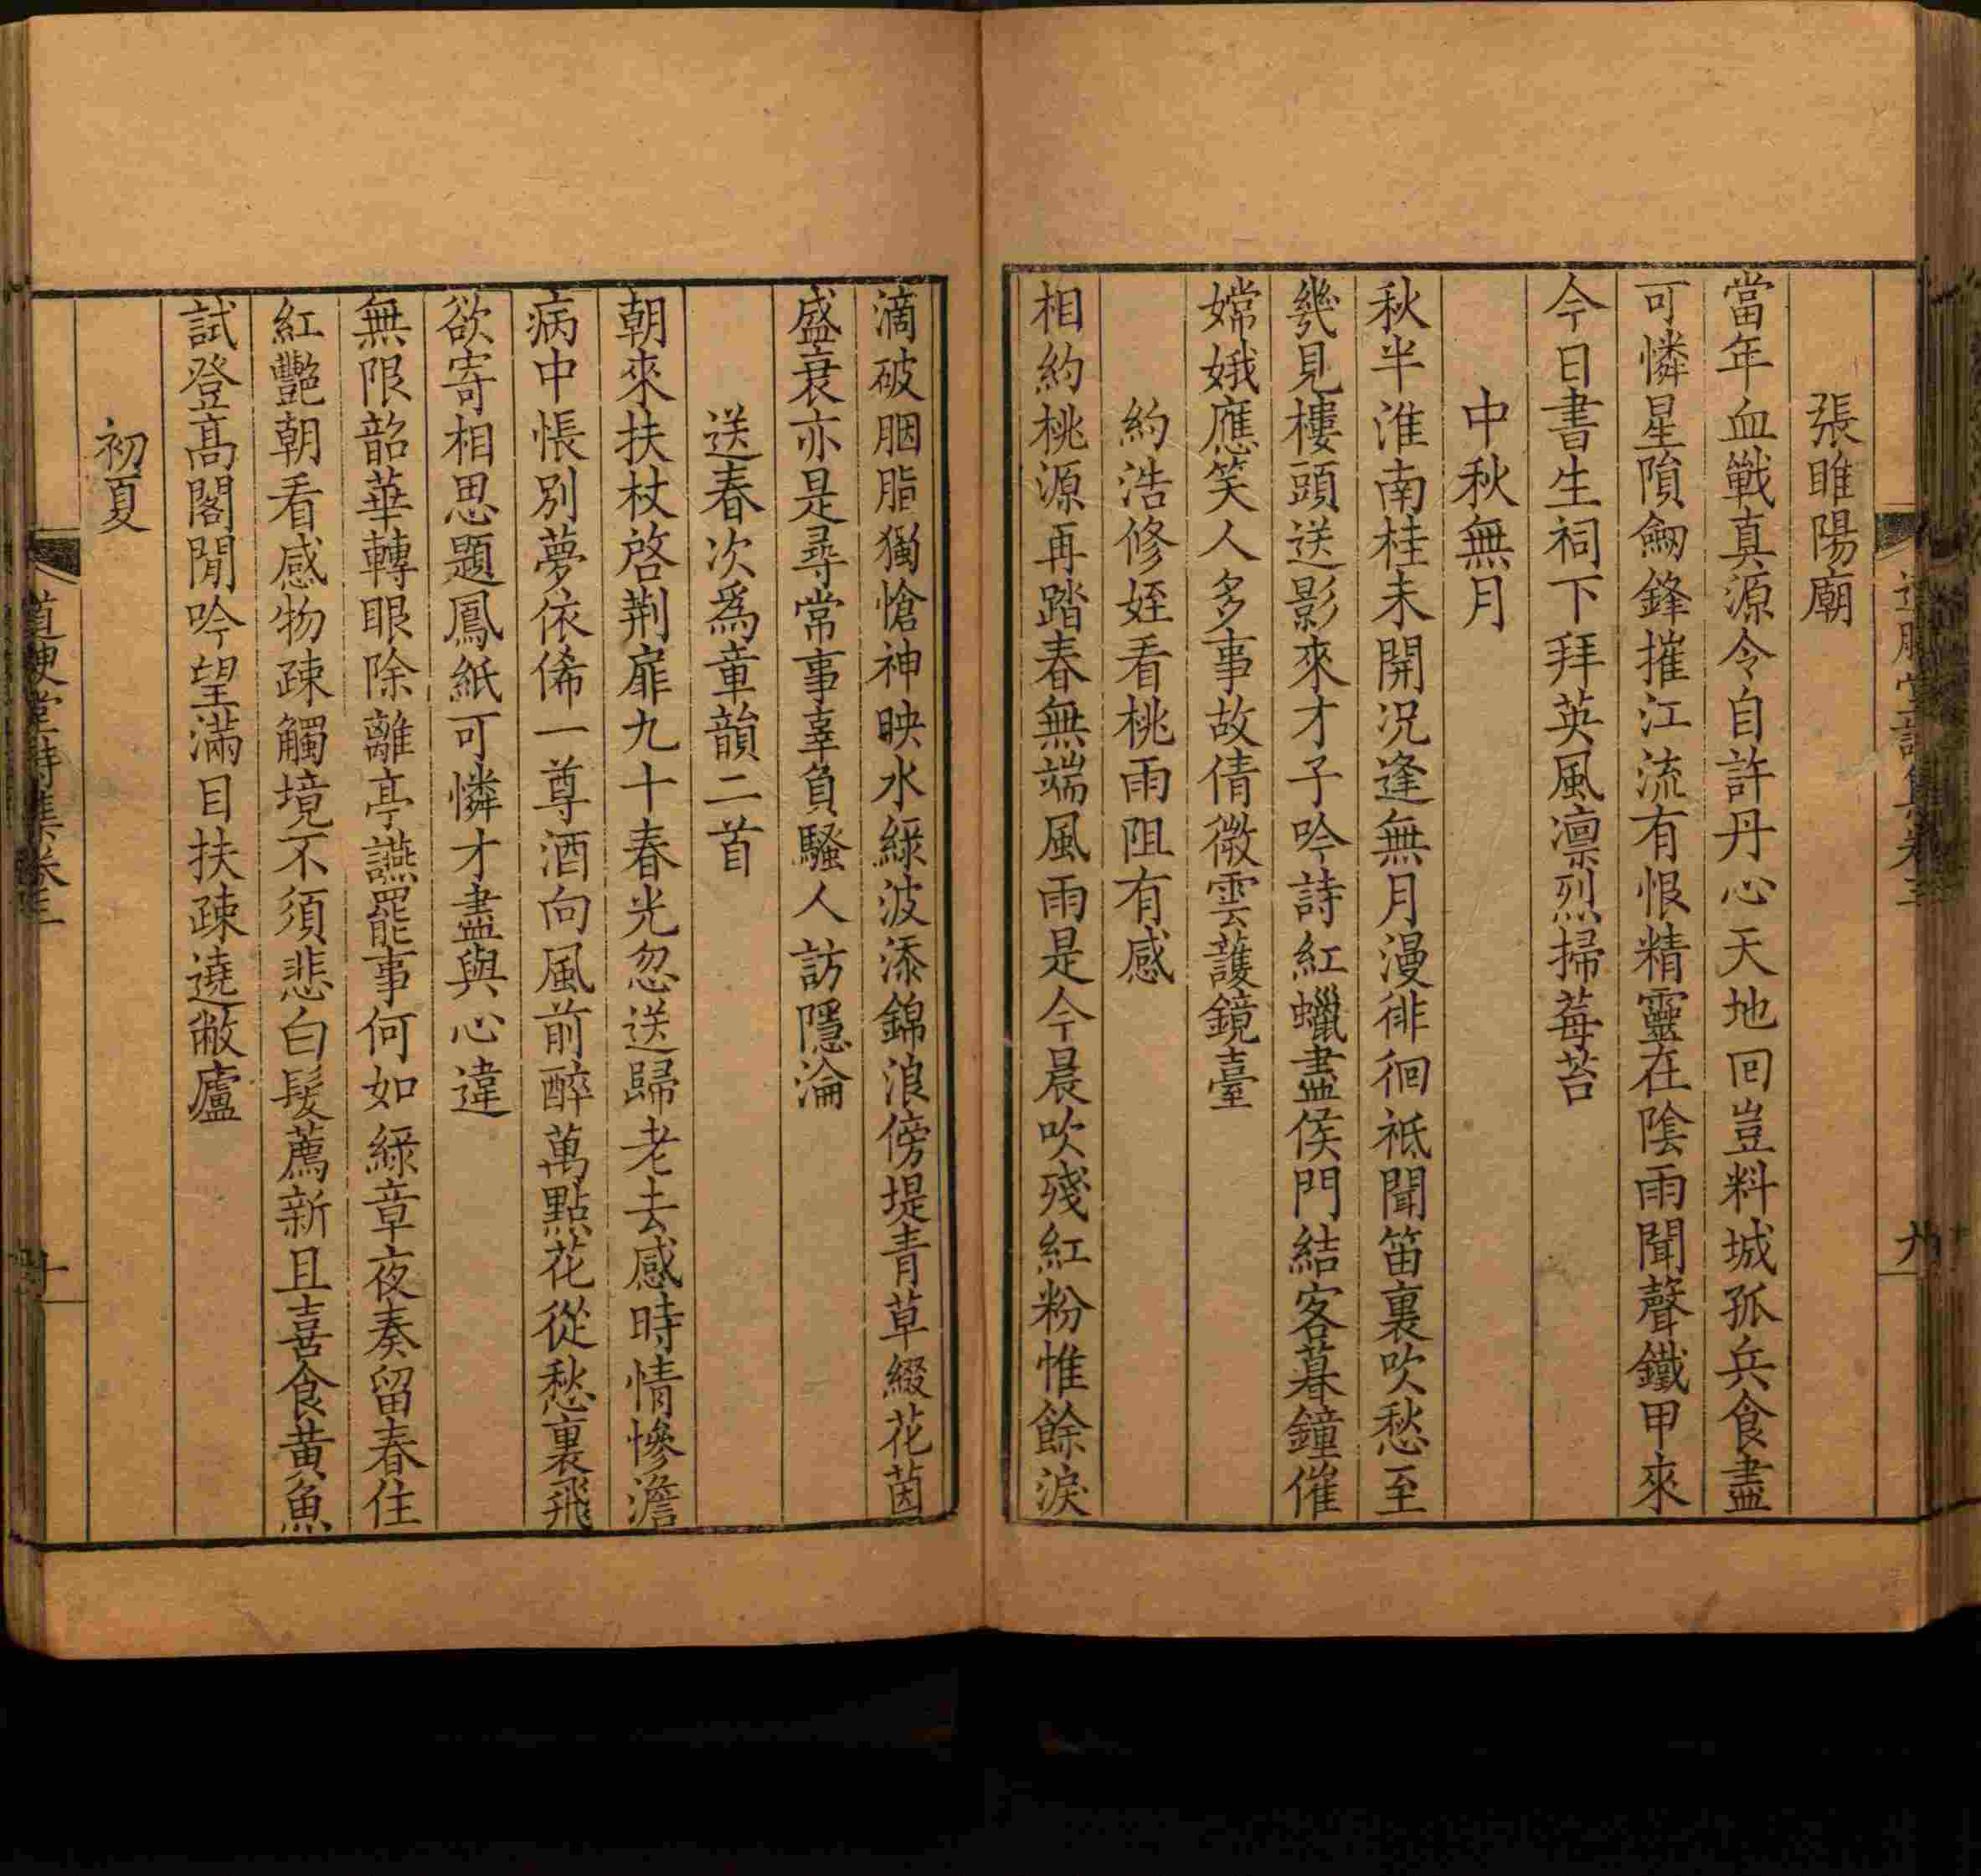 張睢陽廟
當年血戰真源令自許丹心天地回豈料城孤兵食盡
可憐星隕劒鋒摧江流有恨精靈在陰雨聞聲鐵甲來
今日書生祠下拜英風凛烈掃莓苔
中秋無月
秋半淮南桂未開况逢無月漫徘徊祗聞笛裏吹愁至
幾見樓頭送影來才子吟詩紅蠟盡侯門結客暮鐘催
嫦娥應笑人多事故倩微雲護鏡臺
約浩修姪看桃雨阻有感
相約桃源再踏春無端風雨是今晨吹殘紅粉惟餘淚
滴破胭脂獨愴神映水綠波添錦浪傍堤青草綴花茵
盛衰亦是尋常事辜負騷人訪隱淪
送春次爲章韻二首
朝來扶杖啓荆扉九十春光忽送歸老去感時情慘澹
病中悵別夢依俙一尊酒向風前醉萬點花從愁裏飛
欲寄相思題鳳紙可憐才盡與心違
無限韶華轉眼除離亭讌罷事何如綠章夜奏留春住
紅艷朝看感物疎觸境不須悲白髮薦新且喜食黃魚
試登高閣閒吟望滿目扶疎遶敝廬
初夏
堂詩集卷三